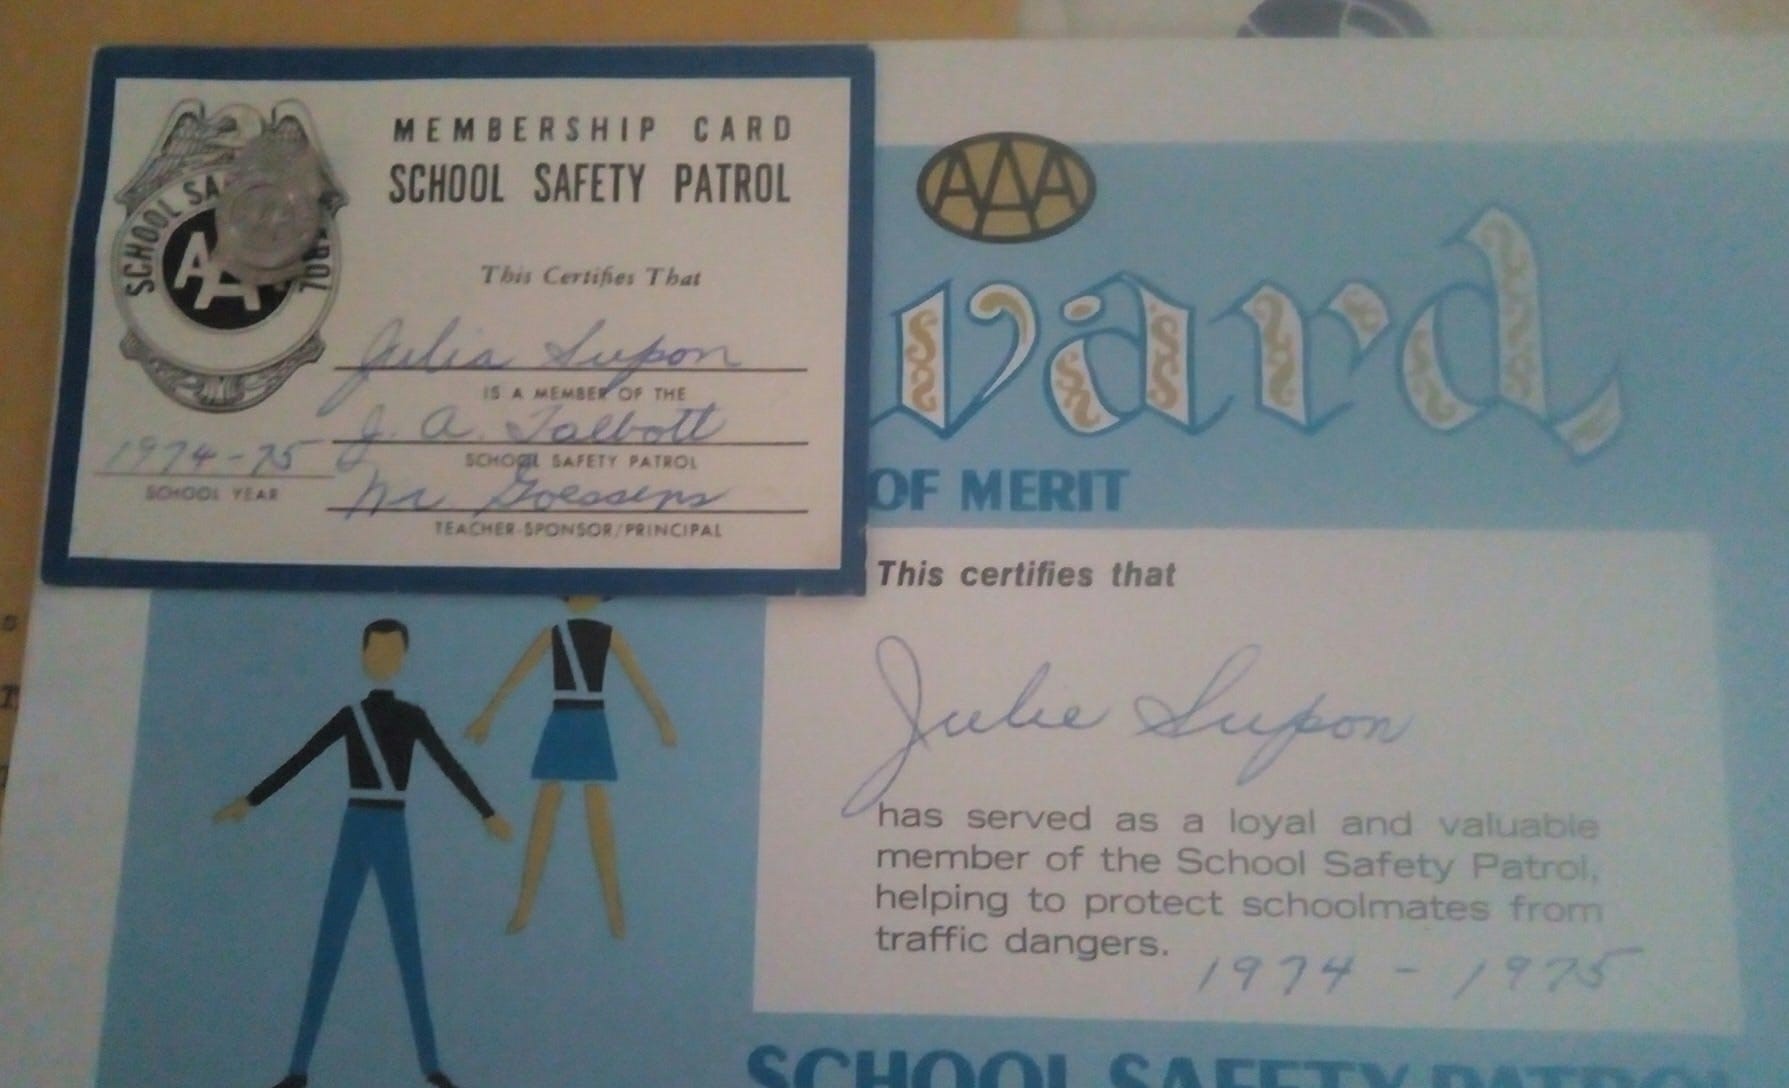 MEMBERSHIP CARD
SCHOOL SAFETY PATROL
SCHOOL SA
ROL
AA
This Certifies That
Julia Supon
IS A MEMBER OF THE
J. A. Talbott
SCHOOL SAFETY PATROL
1974-75
SCHOOL YEAR
Mr Goessens
TEACHER-SPONSOR/PRINCIPAL
AAA
ward
OF MERIT
This certifies that
Julie Supon
has served as a loyal and valuable
member of the School Safety Patrol,
helping to protect schoolmates from
traffic dangers.
1974 - 1975
SCHOOL SAFETY PATROL